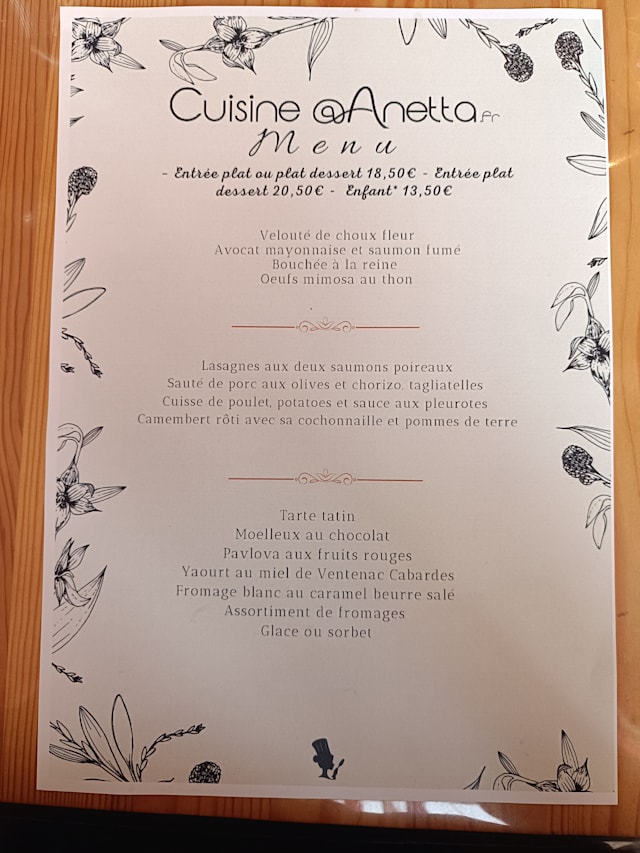 Cuisine @Anetta.fr
Menu
- Entrée plat ou plat dessert 18,50€ - Entrée plat
dessert 20,50€ - Enfant* 13,50€
Velouté de choux fleur
Avocat mayonnaise et saumon fumé
Bouchée à la reine
Oeufs mimosa au thon
Lasagnes aux deux saumons poireaux
Sauté de porc aux olives et chorizo, tagliatelles
Cuisse de poulet, potatoes et sauce aux pleurotes
Camembert rôti avec sa cochonnaille et pommes de terre
Tarte tatin
Moelleux au chocolat
Pavlova aux fruits rouges
Yaourt au miel de Ventenac Cabardes
Fromage blanc au caramel beurre salé
Assortiment de fromages
Glace ou sorbet